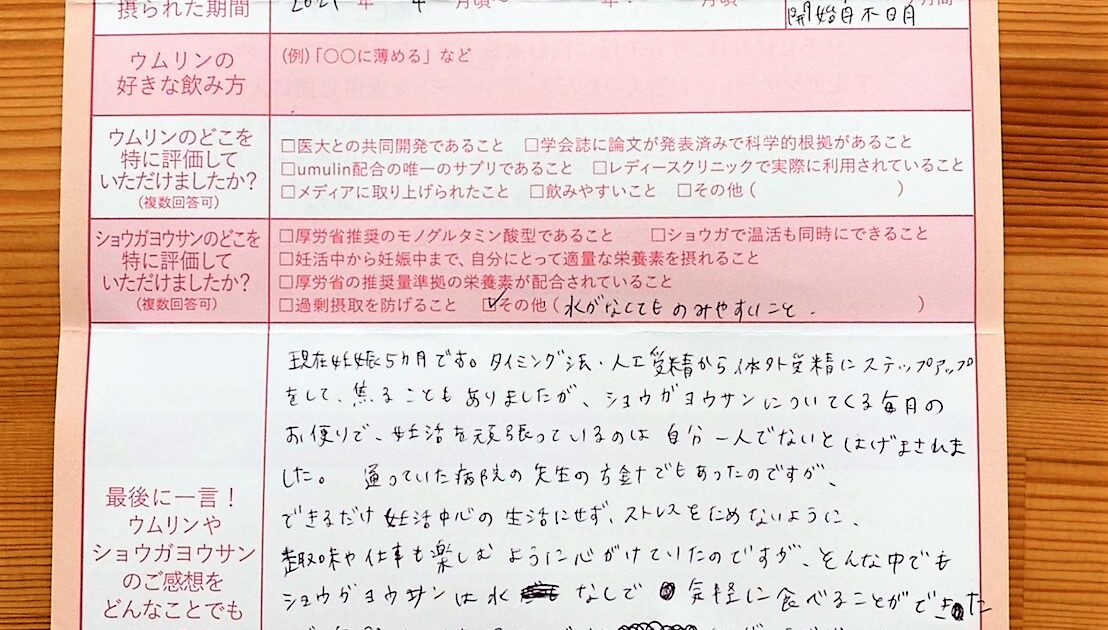 摂られた期間
2021 年 4 月頃～ 年 月頃
開始月不明月
ウムリンの
好きな飲み方
(例)「〇〇に薄める」など
ウムリンのどこを
特に評価して
いただけましたか？
(複数回答可)
□医大との共同開発であること □学会誌に論文が発表済みで科学的根拠があること
□umulin配合の唯一のサプリであること □レディースクリニックで実際に利用されていること
□メディアに取り上げられたこと □飲みやすいこと □その他 ( )
ショウガヨウサンのどこを
特に評価して
いただけましたか？
(複数回答可)
□厚労省推奨のモノグルタミン酸型であること □ショウガで温活も同時にできること
□妊活中から妊娠中まで、自分にとって適量な栄養素を摂れること
□厚労省の推奨量準拠の栄養素が配合されていること
□過剰摂取を防げること ☑その他 ( 水がなくてものみやすいこと. )
最後に一言！
ウムリンや
ショウガヨウサン
のご感想を
どんなことでも
現在妊娠5カ月です。タイミング法・人工受精から体外受精にステップアップ
をして、焦ることもありましたが、ショウガヨウサンについてくる毎月の
お便りで、妊活を頑張っているのは自分一人でないとはげまされま
した。 通っていた病院の先生の方針でもあったのですが、
できるだけ妊活中心の生活にせず、ストレスをためないように、
趣味や仕事も楽しむように心がけていたのですが、そんな中でも
ショウガヨウサンは水 なしで 気軽に食べることができた